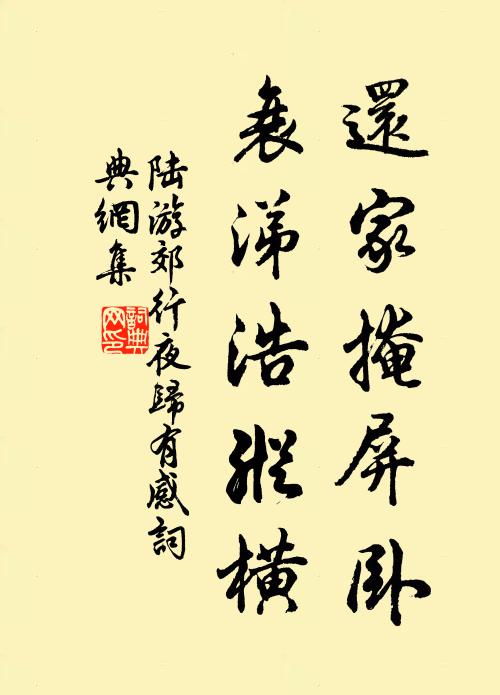 還家掩屏臥
衰涕浩縱橫
陸游郊行夜歸有感詞
典網集
詞典
网印